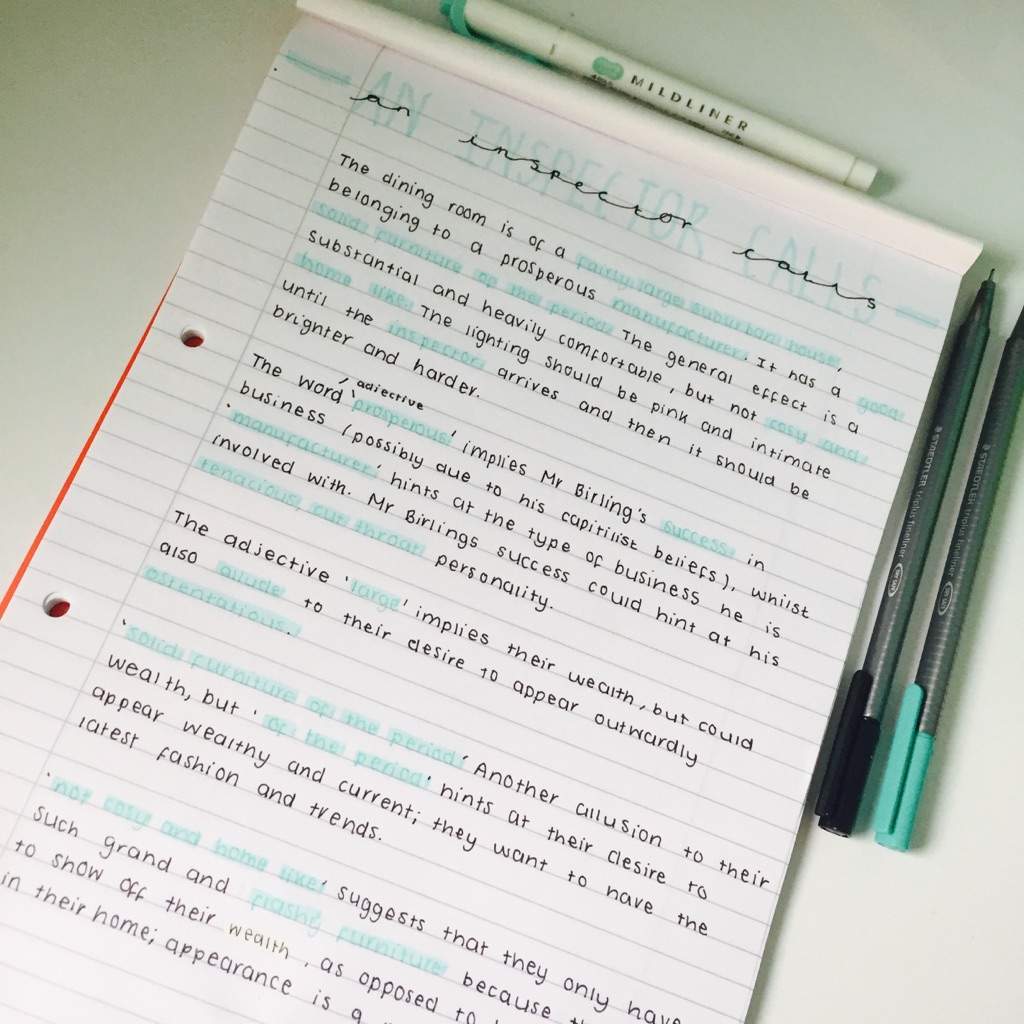 MILDLINER
AN INSPECTOR CALLS
an inspector calls
The dining room is of a fairly large suburban house,
belonging to a prosperous manufacturer. It has a good
solid furniture of the period. The general effect is a
substantial and heavily comfortable, but not cosy and
home like. The lighting should be pink and intimate
until the inspector arrives and then it should be
brighter and harder.
adjective
The word 'prosperous' implies Mr Birling's success in
business (possibly due to his capitilist beliefs), whilst
'manufacturer' hints at the type of business he is
involved with. Mr Birlings success could hint at his
tenacious, cut throat personality.
The adjective 'large' implies their wealth, but could
also allude to their desire to appear outwardly
ostentatious.
'solid furniture of the period' Another allusion to their
wealth, but 'of the period' hints at their desire to
appear wealthy and current; they want to have the
latest fashion and trends.
'not cosy and home like' suggests that they only have
such grand and flashy furniture because
to show off their wealth, as opposed to
in their home; appearance is a
STAEDTLER triplus fineliner
STAEDTLER triplus fineliner